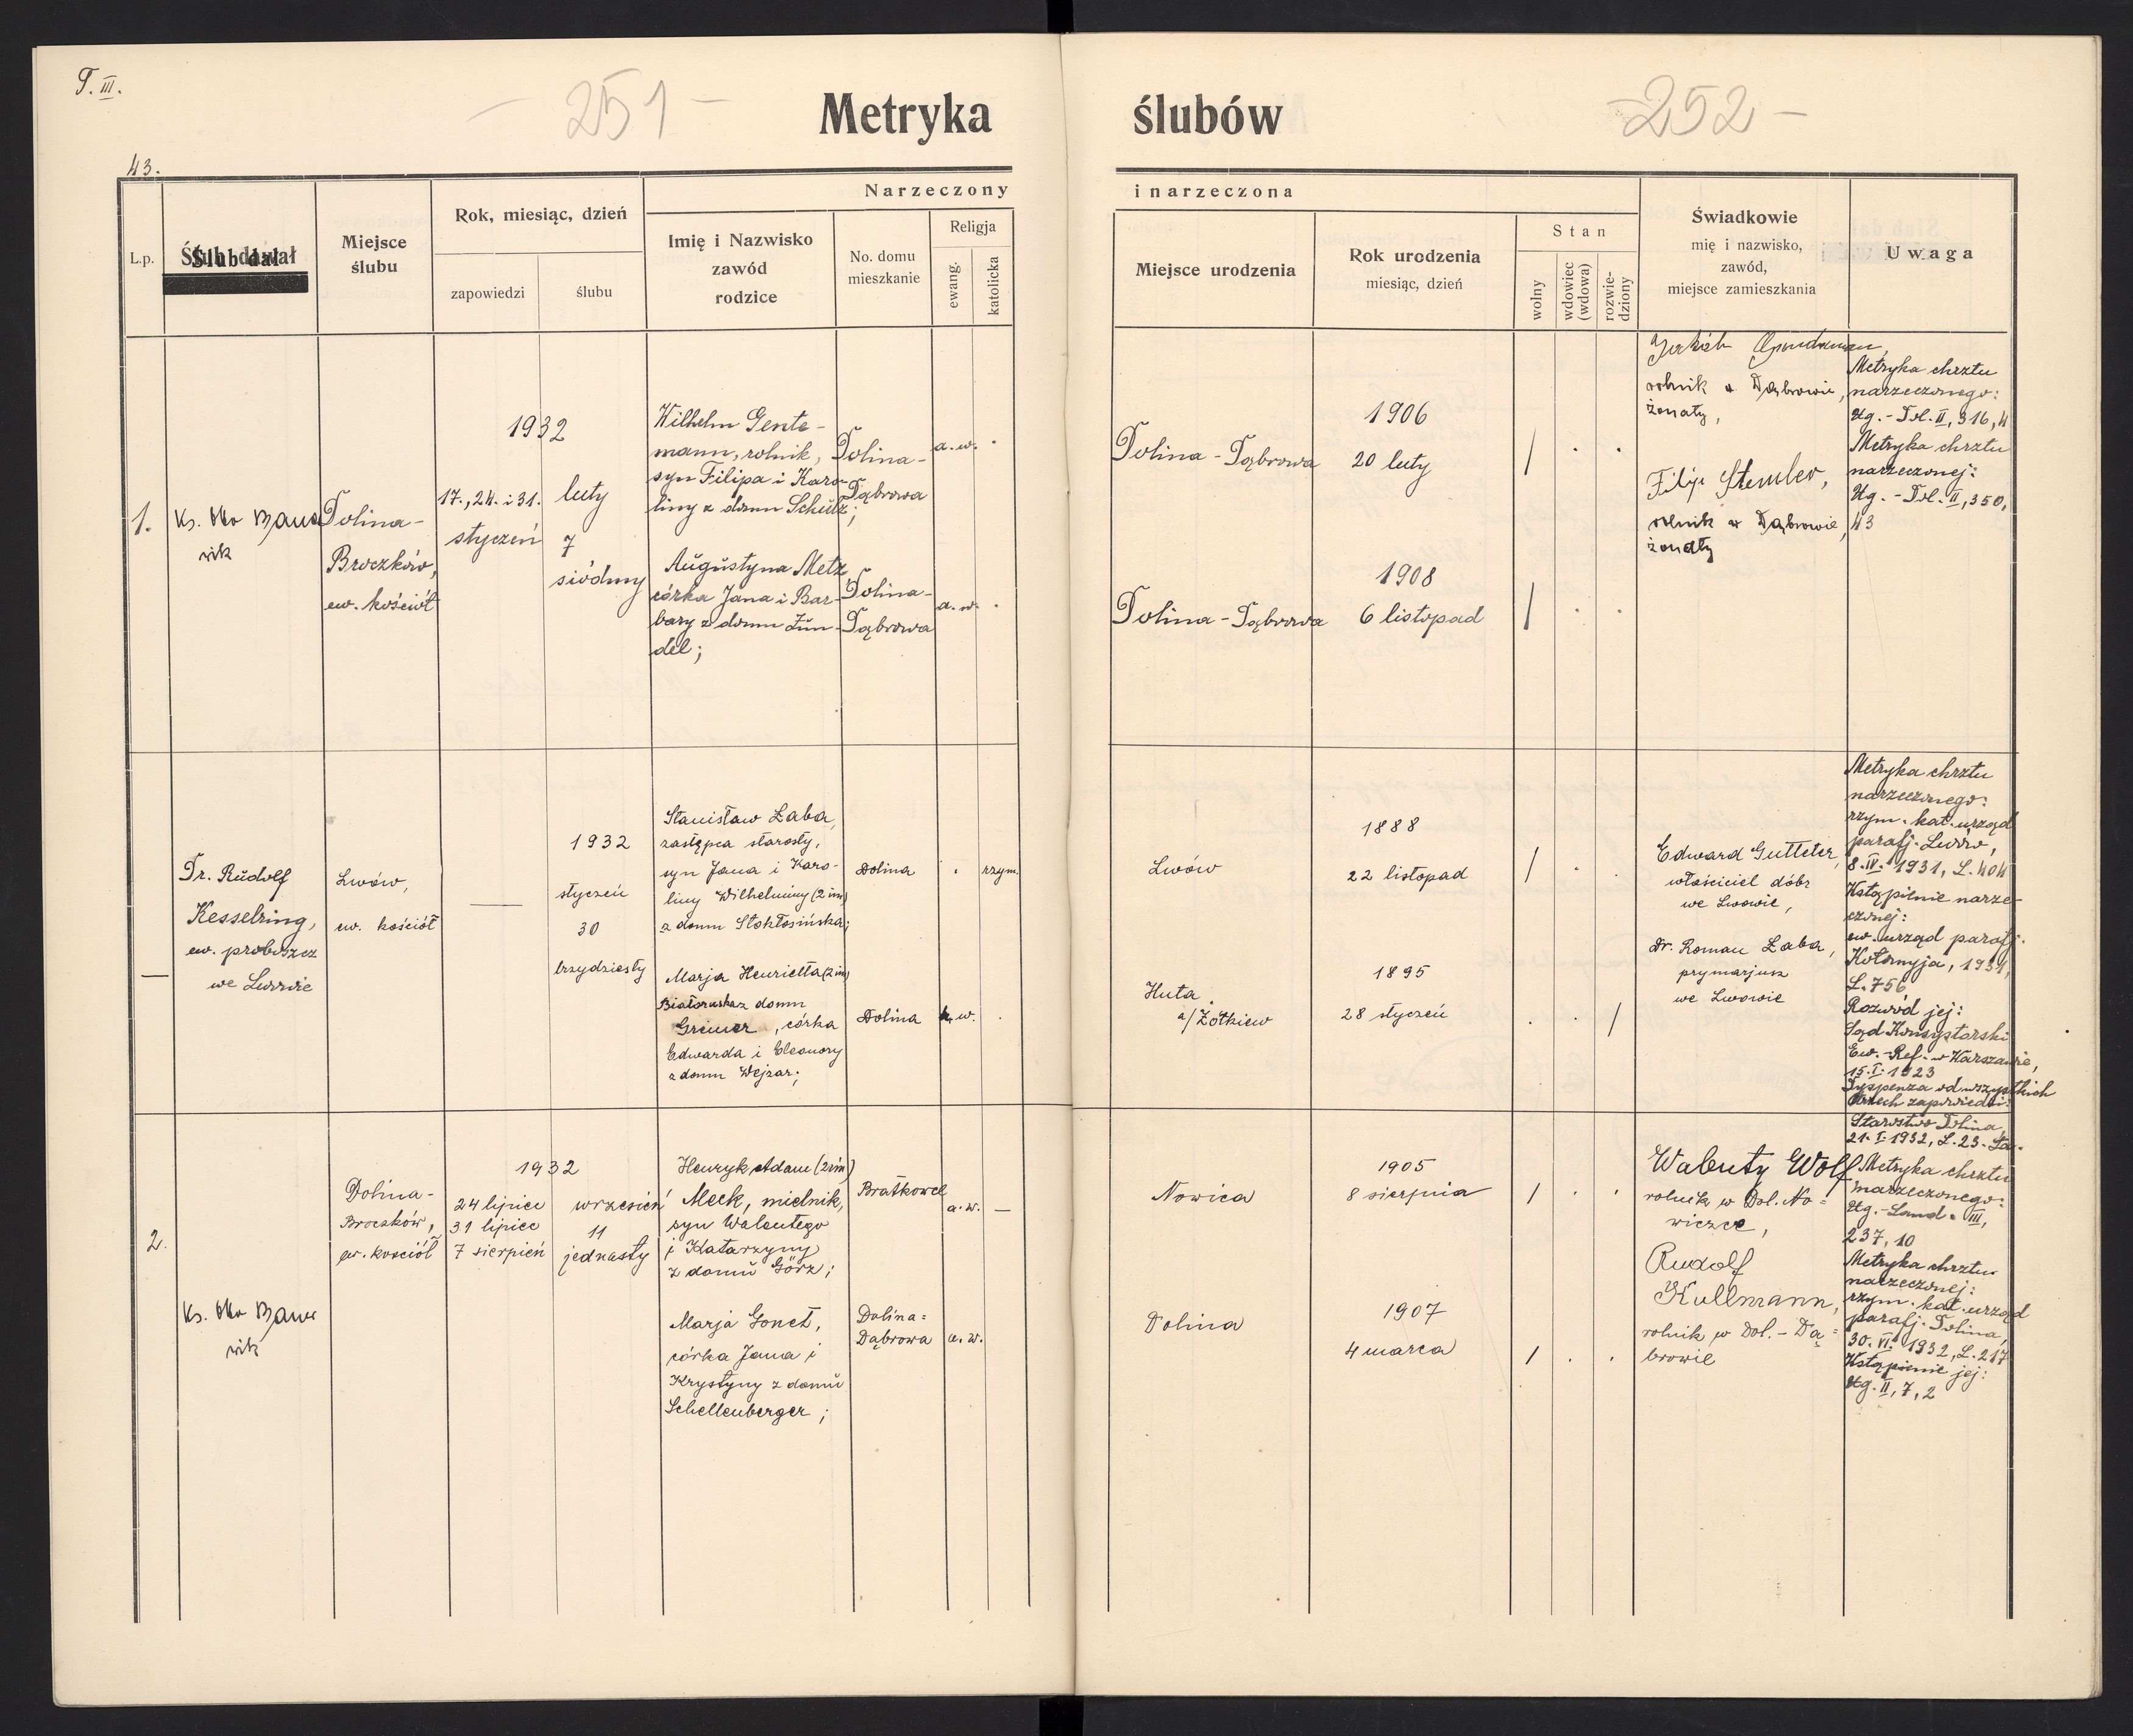 T. III.
- 251 -
Metryka
43.
Narzeczony
L.p.
Ślub dał
Miejsce
ślubu
Rok, miesiąc, dzień
zapowiedzi
ślubu
Imię i Nazwisko
zawód
rodzice
No. domu
mieszkanie
Religja
ewang.
katolicka
1.
Ks.
Dolina-
Broczków,
ew. kościół
1932
17., 24. i 31.
styczeń
luty
7
siódmy
Wilhelm Gente-
mann, rolnik,
syn Filipa i Karo-
liny z domu Schulz;
Dolina-
Dąbrowa
a. w.
Augustyna Metz
córka Jana i Bar-
bary z domu Zün-
del;
Dolina-
Dąbrowa
a. w.
—
Dr. Rudolf
Kesselring,
ew. proboszcz
we Lwowie
Lwów,
ew. kościół
—
1932
styczeń
30
trzydziesty
Stanisław Łaba,
zastępca starosty,
syn Jana i Karo-
liny Wilhelminy (2 im)
z domu Stokłosińska;
Dolina
rzym.
Marja Henrietta (2 im)
Białoruska z domu
Greiner, córka
Edwarda i Eleonory
z domu Wejzar;
Dolina
w.
2.
Ks.
Dolina-
Broczków,
ew. kościół
1932
24 lipiec
31 lipiec
7 sierpień
wrzesień
11
jednasty
Henryk Adam (2 im)
Meck, mielnik,
syn Walentego
i Katarzyny
z domu Görz;
Bratkowce
a. w. —
Marja Gonet,
córka Jana i
Krystyny z domu
Schellenberger;
Dolina=
Dąbrowa
a. w.
ślubów
- 252 -
i narzeczona
Miejsce urodzenia
Rok urodzenia
miesiąc, dzień
Stan
wolny
wdowiec
(wdowa)
rozwie-
dziony
Świadkowie
mię i nazwisko,
zawód,
miejsce zamieszkania
Uwaga
Dolina - Dąbrowa
1906
20 luty
/
Dolina - Dąbrowa
1908
6 listopad
/
rolnik w Dąbrowie,
żonaty,
Filip Stemler,
rolnik w Dąbrowie,
żonaty
Metryka chrztu
narzeczonego:
Ug. - Dol. II, 316, 4
Metryka chrztu
narzeczonej:
Ug. - Dol. II, 350,
43
Lwów
1888
22 listopad
/
Huta
a/Żółkiew
1895
28 styczeń
/
Edward Gutteter,
właściciel dóbr
we Lwowie,
Dr. Roman Łaba,
prymarjusz
we Lwowie
Metryka chrztu
narzeczonego:
rzym. kat. urząd
parafj. Lwów,
8. IV. 1931, L. 404
Wstąpienie narze-
czonej:
ew. urząd parafj.
Kołomyja, 1931,
L. 756
Rozwód jej:
Sąd Konsystorski
Ew.-Ref. w Warszawie,
15. I. 1923
Dyspenza od wszystkich
trzech zapowiedzi:
Starostwo Dolina,
21. I. 1932, L. 23.
Nowica
1905
8 sierpnia
/
Dolina
1907
4 marca
/
Walenty Wolf
rolnik w Dol. No=
wiczce,
Rudolf
Kullmann,
rolnik w Dol. - Dą=
browie
Metryka chrztu
narzeczonego:
Ug. - Land. III,
237, 10
Metryka chrztu
narzeczonej:
rzym. kat. urząd
parafj. Dolina,
30. VI. 1932, L. 217
Wstąpienie jej:
Ug. II, 7, 2